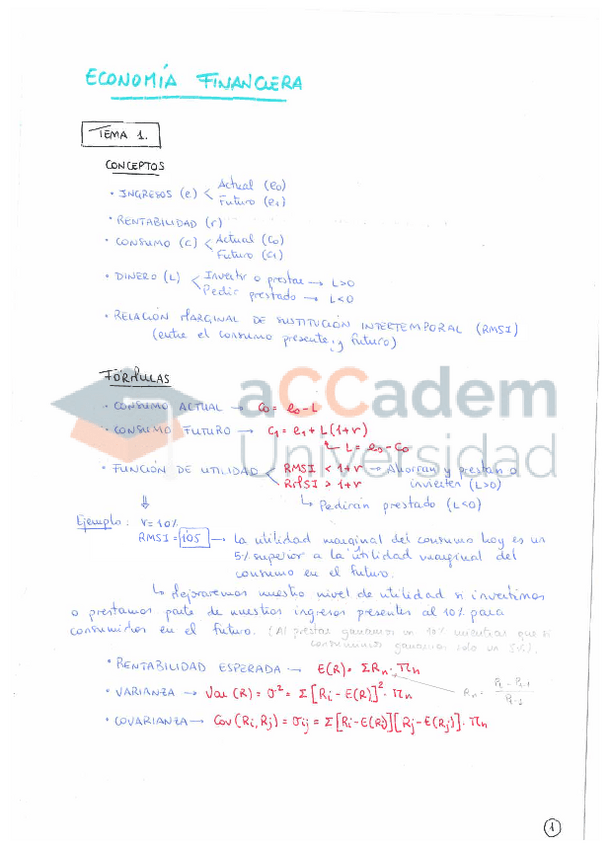 ECONOMÍA FINANCIERA
TEMA 1.
CONCEPTOS
· INGRESOS (e) < Actual (e0)
Futuro (e1)
· RENTABILIDAD (r)
· CONSUMO (C) < Actual (C0)
Futuro (C1)
· DINERO (L) < Invertir o prestar → L>0
Pedir prestado → L<0
· RELACIÓN MARGINAL DE SUSTITUCIÓN INTERTEMPORAL (RMSI)
(entre el consumo presente y futuro)
FÓRMULAS
aCCadem
Universidad
· CONSUMO ACTUAL → C0 = e0 - L
· CONSUMO FUTURO → C1 = e1 + L(1+r)
L = e0 - C0
· FUNCIÓN DE UTILIDAD < RMSI < 1+r → Ahorran y prestan o
RMSI > 1+r invierten (L>0)
↳ Pedirán prestado (L<0)
⇓
Ejemplo: r=10%
RMSI = 105 → la utilidad marginal del consumo hoy es un
5% superior a la utilidad marginal del
consumo en el futuro.
↳ Mejoraremos nuestro nivel de utilidad si invertimos
o prestamos parte de nuestros ingresos presentes al 10% para
consumirlos en el futuro. (Al prestar ganamos un 10% mientras que si
consumimos ganamos solo un 5%).
· RENTABILIDAD ESPERADA → E(R) = ΣRn · Πn
· VARIANZA → Var (R) = σ² = Σ [Ri - E(R)]² · Πn Rn = Pt - Pt-1 / Pt-1
· COVARIANZA → Cov (Ri, Rj) = σij = Σ [Ri - E(Ri)] [Rj - E(Rj)] · Πn
1